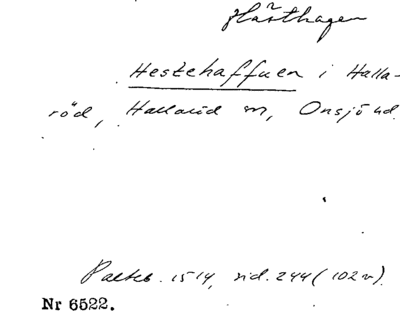 Hästhagen
Hestehaffuen i Halla-
röd, Hallaröd sn, Onsjö hd.
Palteb. 1514, sid. 244 (102 v).
Nr 6522.